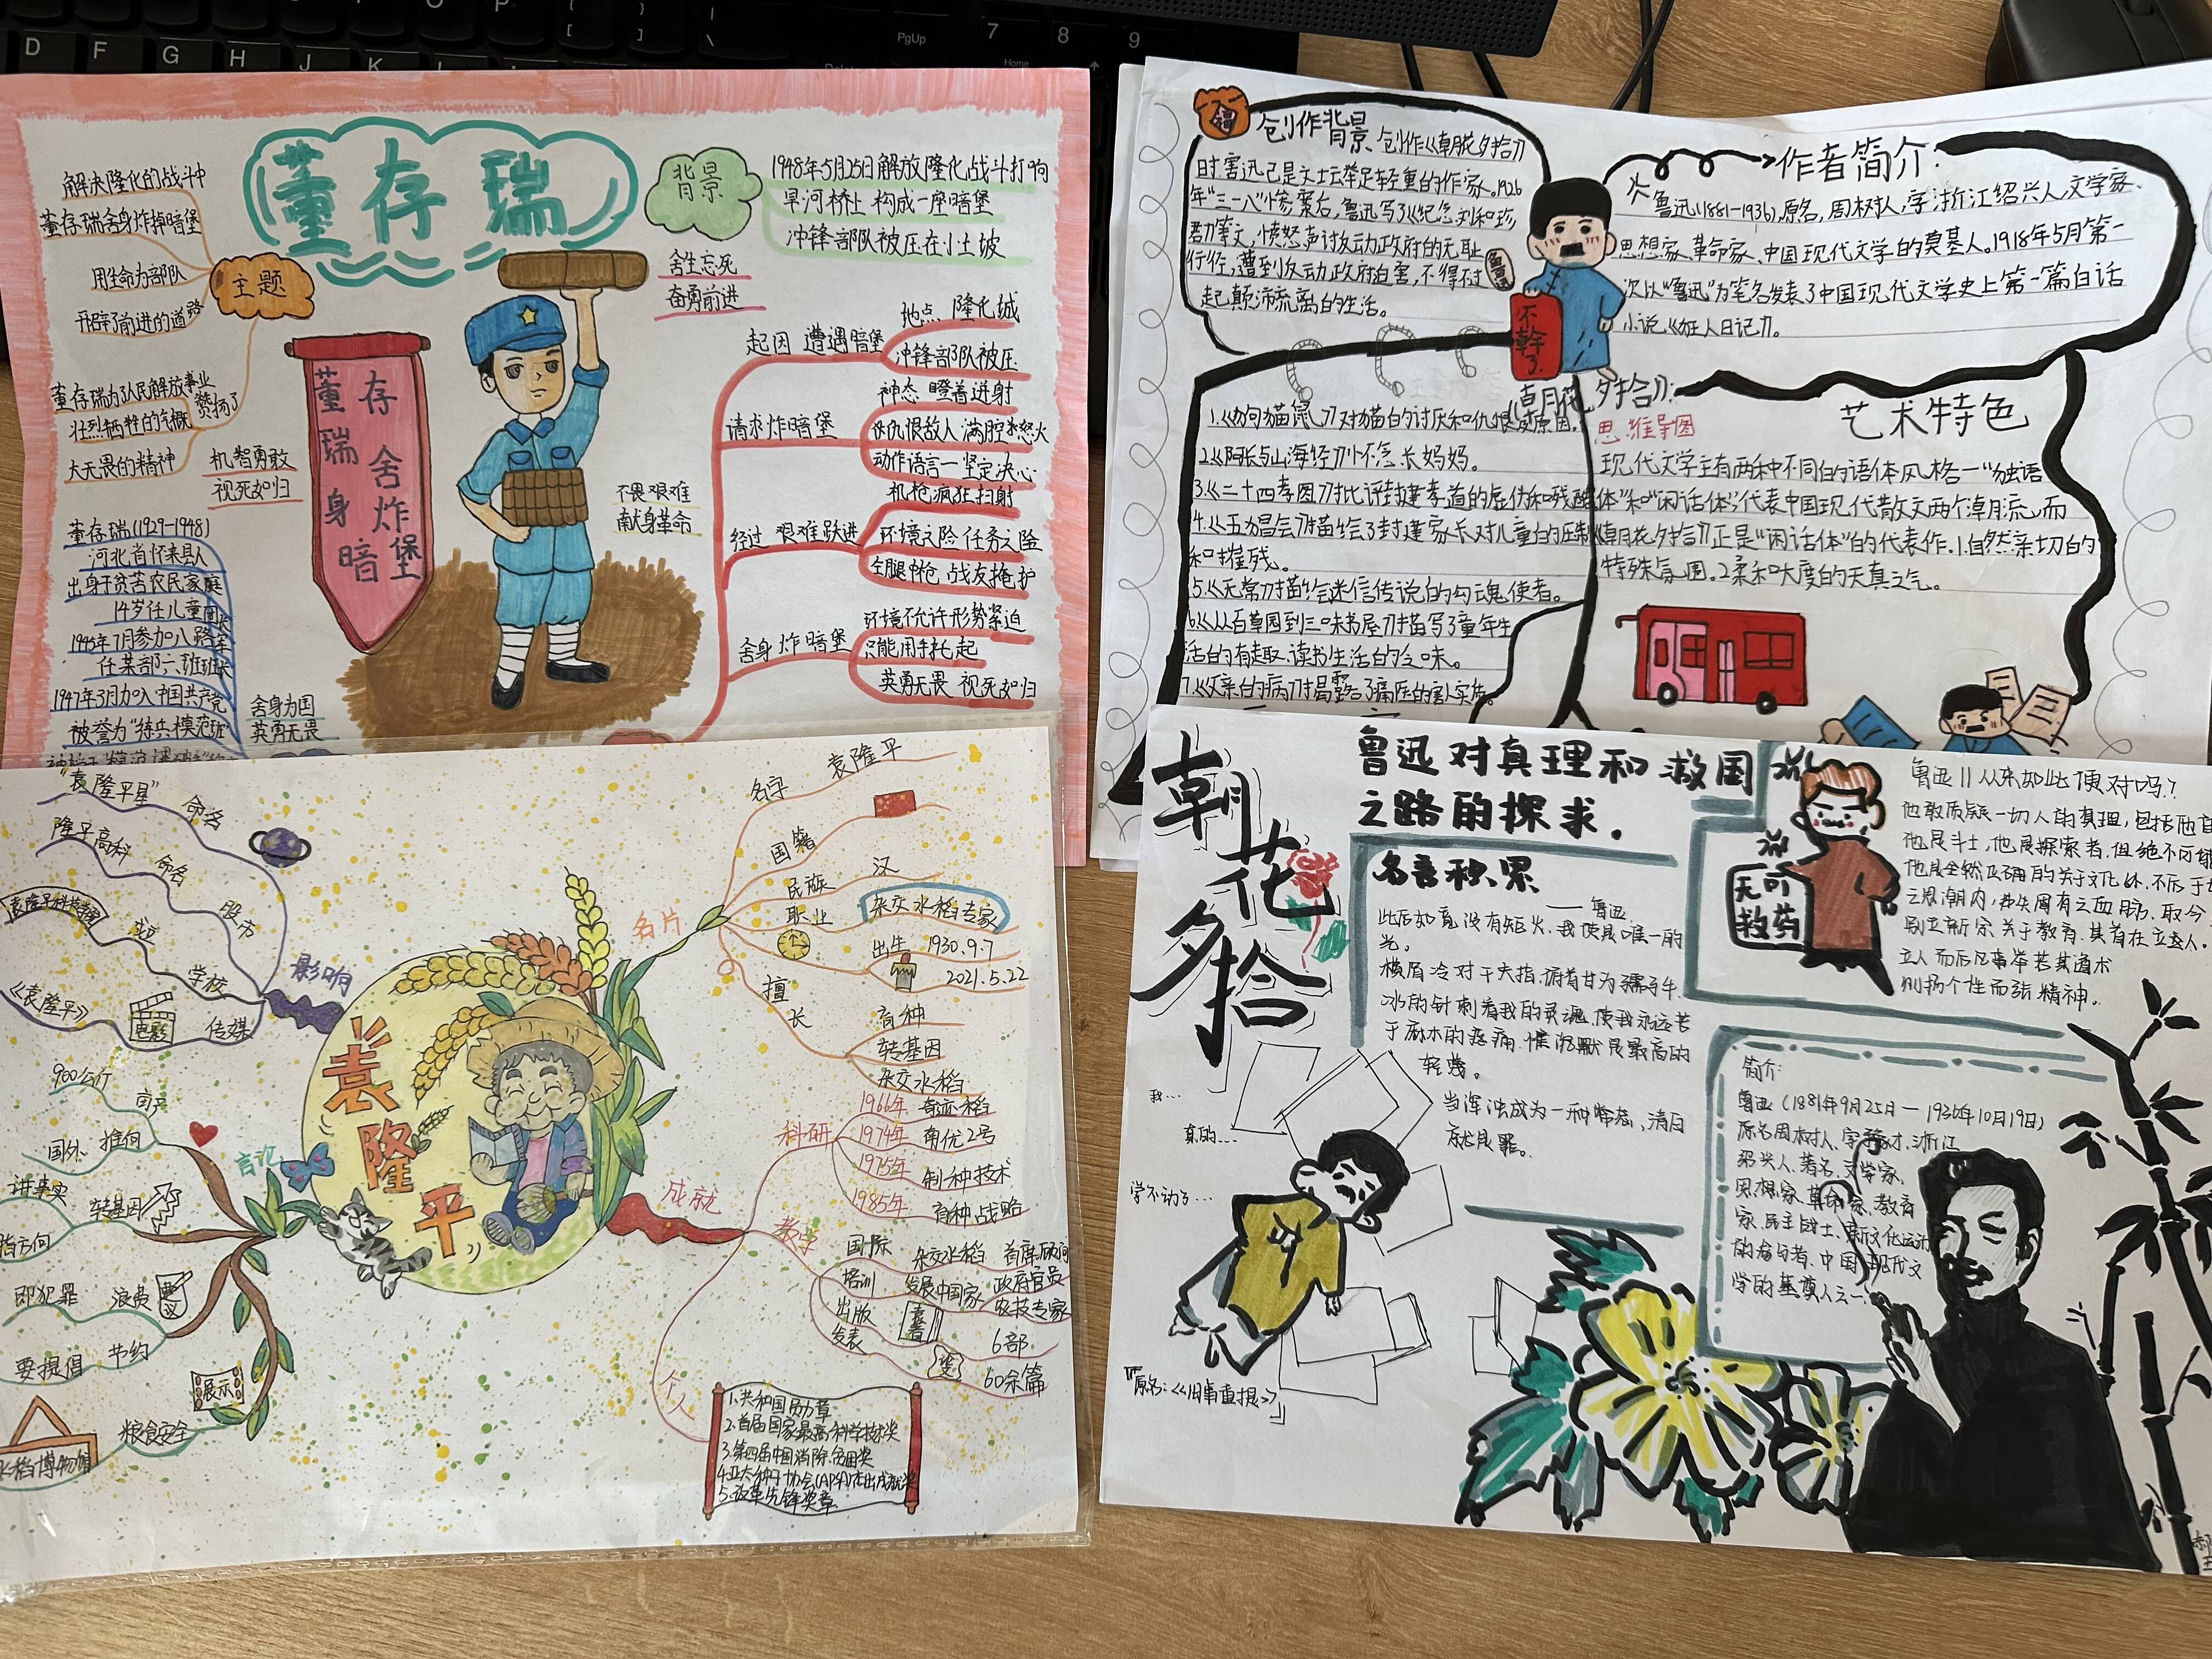 董存瑞
解决隆化的战斗中
董存瑞舍身炸掉暗堡
用生命为部队
开辟了前进的道路
主题
董存瑞为了人民解放事业
壮烈牺牲的气概
赞扬了
大无畏的精神
机智勇敢
视死如归
董存瑞(1929-1948)
河北省怀来县人
出身于贫苦农民家庭
14岁任儿童团长
1945年7月参加八路军
任某部六班班长
1947年3月加入中国共产党
被誉为“练兵模范班”
舍身为国
英勇无畏
董存瑞舍身炸暗堡
背景
1948年5月25日解放隆化战斗打响
旱河桥上构成一座暗堡
冲锋部队被压在小土坡
舍生忘死
奋勇前进
不畏艰难
献身革命
起因 遭遇暗堡
地点 隆化城
冲锋部队被压
请求炸暗堡
神态 瞪着迸射
仇恨敌人 满腔怒火
动作语言一坚定决心
经过 艰难跃进
机枪疯狂扫射
环境之险 任务之险
左腿中枪 战友掩护
舍身炸暗堡
环境不允许形势紧迫
只能用手托起
英勇无畏 视死如归
创作背景
创作《朝花夕拾》
时鲁迅已是文坛举足轻重的作家。1926
年“三一八”惨案后,鲁迅写了《纪念刘和珍
君》等文,愤怒声讨反动政府的无耻
行径,遭到反动政府迫害,不得不过
起颠沛流离的生活。
鲁迅
不幹了
作者简介:
鲁迅(1881-1936),原名,周树人,字浙江绍兴人,文学家、
思想家、革命家、中国现代文学的奠基人。1918年5月第一
次以“鲁迅”为笔名发表了中国现代文学史上第一篇白话
小说《狂人日记》。
《朝花夕拾》:
思维导图
1.《狗·猫·鼠》对猫的讨厌和仇恨及原因。
2.《阿长与山海经》怀念长妈妈。
3.《二十四孝图》批评封建孝道的虚伪和残酷
4.《五猖会》描绘了封建家长对儿童的压制
和摧残。
5.《无常》描绘迷信传说的勾魂使者。
6.《从百草园到三味书屋》描写了童年生
活的有趣、读书生活的乏味。
7.《父亲的病》揭露了庸医的害人实质。
艺术特色
现代文学主有两种不同的语体风格一“独语
体”和“闲话体”,代表中国现代散文两个潮流,而
《朝花夕拾》正是“闲话体”的代表作.1.自然亲切的
特殊氛围。2.柔和大度的天真之气。
袁隆平
影响
“袁隆平星”
命名
隆平高科
命名
股市
学校
传媒
电影
《袁隆平》
言论
900公斤
亩产
国外
推向
讲事实
转基因
指方向
即犯罪
浪费
要提倡
节约
展示
粮食安全
水稻博物馆
名片
名字 袁隆平
国籍
民族 汉
职业 杂交水稻专家
出生 1930.9.7
2021.5.22
擅长
育种
转基因
杂交水稻
成就
科研
1966年 奇迹稻
1974年 南优2号
1975年 制种技术
1985年 育种战略
教学
国际 杂交水稻 首席顾问
培训 发展中国家 政府官员
农技专家
出版 6部
发表 60余篇
个人
1.共和国勋章
2.首届国家最高科学技术奖
3.第四届中国消除贫困奖
4.亚太种子协会(APSA)杰出成就奖
5.改革先锋奖章
朝花夕拾
鲁迅对真理和救国
之路的探求.
名言积累
——鲁迅
此后如竟没有炬火,我便是唯一的
光。
横眉冷对千夫指,俯首甘为孺子牛.
冰的针刺着我的灵魂,使我永远苦
于麻木的疼痛.惟沉默是最高的
轻蔑。
当浑浊成为一种常态,清白
就是罪。
我...
真的...
学不动了...
『原名:《旧事重提》』
无可
救药
鲁迅||从来如此便对吗?
他敢质疑一切人的真理,包括他自
他是斗士,他是探索者,但绝不可
他是全然正确的关于文化,外,不后于世
之思潮内,弗失固有之血脉.取今
别立新宗.关于教育.其首在立人.
立人而后凡事举若其道术
则扬个性而张精神。
简介:
鲁迅(1881年9月25日—1936年10月19日)
原名周树人,字豫才,浙江
绍兴人、著名文学家、
思想家、革命家、教育
家、民主战士、新文化运动
的参与者、中国现代文
学的基奠人之一